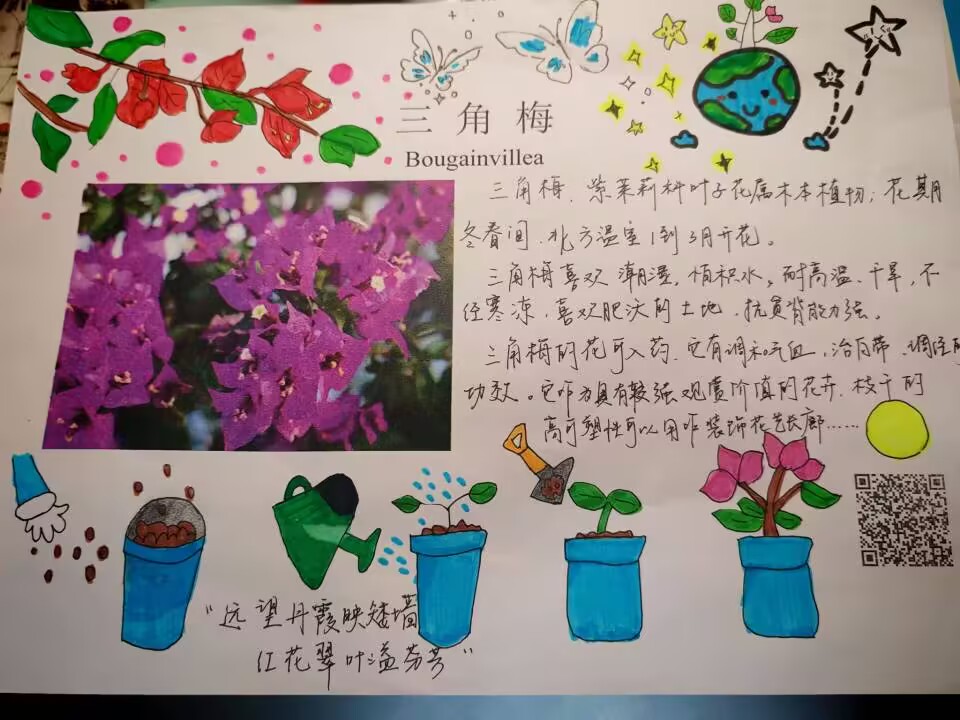 三角梅
Bougainvillea
三角梅、紫茉莉科叶子花属木本植物；花期
冬春间、北方温室1到3月开花。
三角梅喜欢潮湿，怕积水，耐高温、干旱，不
经寒冻，喜欢肥沃的土地、抗贫瘠能力强。
三角梅的花可入药、它有调和气血，治白带、调经的
功效。它作为具有较强观赏价值的花卉、枝干的
高可塑性可以用作装饰花艺长廊……
“远望丹霞映矮墙
红花翠叶溢芬芳”